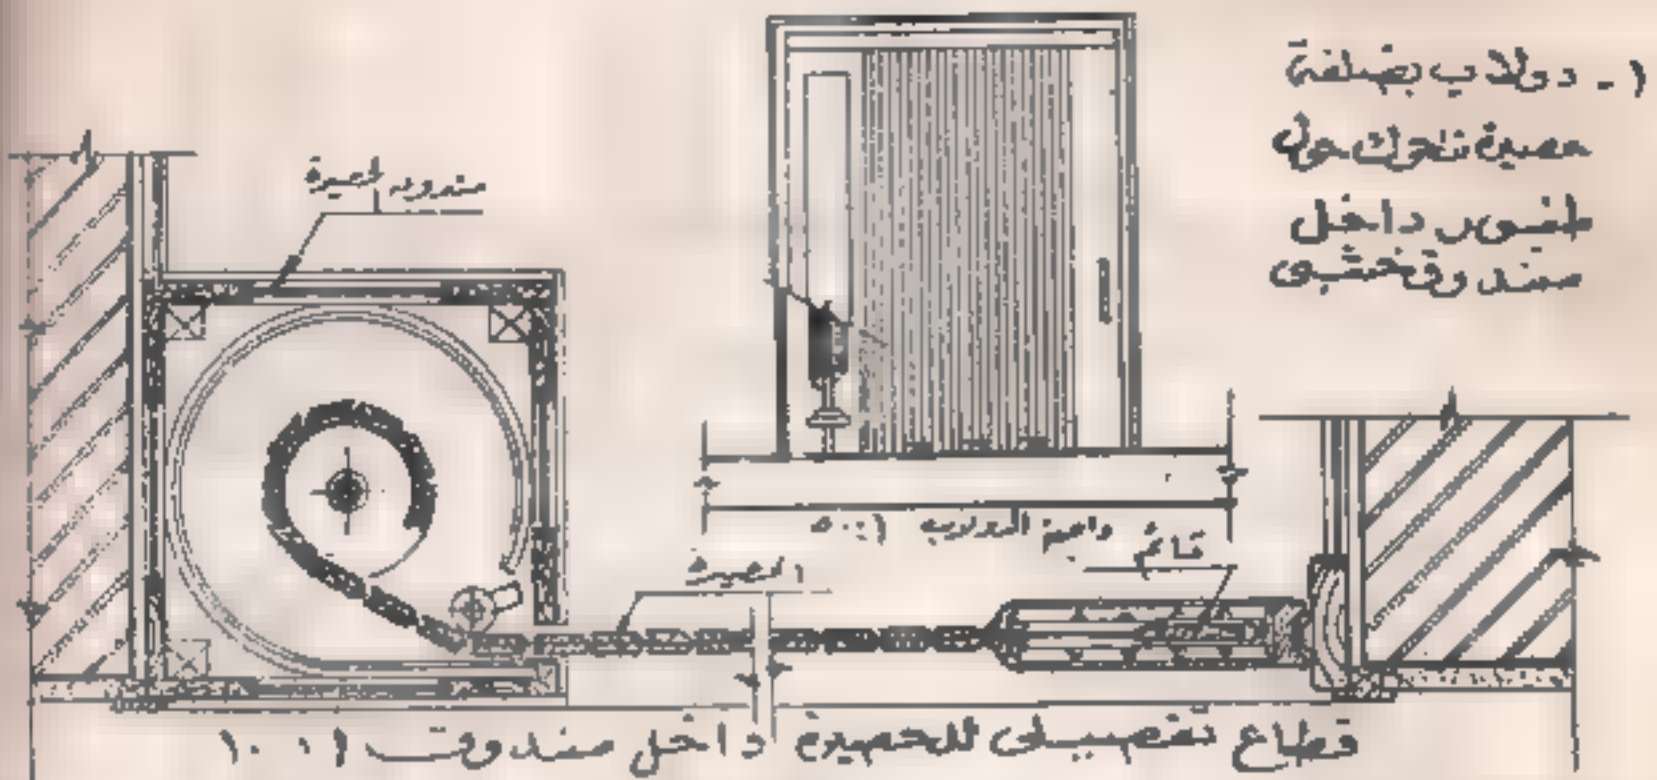 ١- دولاب بضلفة
حصيرة تتحرك حول
طنبور داخل
صندوق خشبى
صندوق الحصيرة
واجهة الدولاب ١:٥٠
قائم
الحصيرة
قطاع تفصيلى للحصيرة داخل صندوق ١:١٠